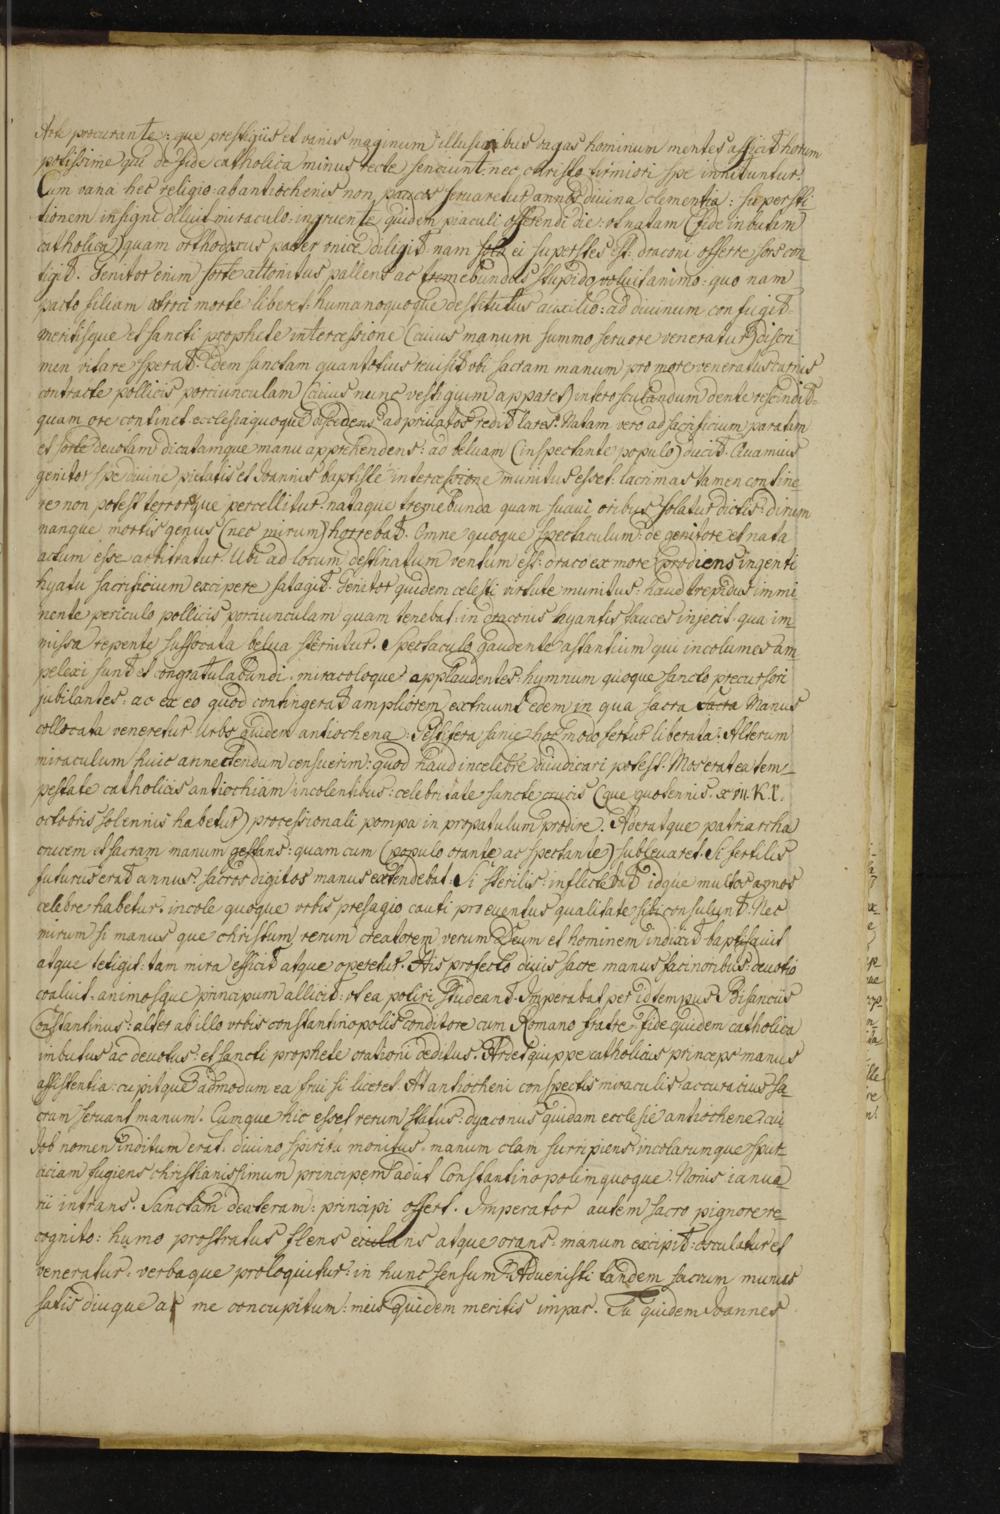 Arte procurante: que prestigiis et vanis maginum illusionibus vagas hominum mentes afficit horum
potissime qui de fide catholica minus recte senciunt. nec christo firmiori spe innituntur.
Cum vana hec religio: ab antiochenis non paucos servaretur annos divina clementia: supersti
tionem insigni diluit miraculo: ingruente quidem piaculi offerendi die: ut natam (fide inbutam
catholica) quam orthodoxus pater unice diligit. nam sola ei superstes est: draconi offerre sors con
tigit. Genitor enim sorte attonitus pallens ac tremebundus stupido voluit animo: quo nam
pacto filiam atroci morte liberet. humanoquoque destitutus auxilio: ad divinum confugit.
meritisque et sancti prophete intercessione (cuius manum summo fervore veneratur) discri
men vitare sperat. Edem sanctam quantotius revisit ubi sacram manum pro more veneratus carnis
contracte pollicis porciunculam (cuius nunc vestigium apparet) inter osculandum dente rescindit.
quam ore continet. ecclesiaquoque discedens ad privatos redit lares. Natam vero ad sacrificium paratam
et sorte devotam dicatamque manu apprehendens: ad beluam (inspectante populo) ducit. Quamvis
genitor spe divine pietatis et Joannis baptiste intercessione munitus esset. lacrimas tamen contine
re non potest terrorque percellitur. nataque tremebunda quam suavioribus solatur dictis: dirum
nanque mortis genus (nec mirum) horrebat. Omne quoque spectaculum: de genitore et nata
actum esse arbitratur. Ubi ad locum destinatum ventum est: draco ex more prodiens ingenti
hyatu sacrificium excipere satagit. Genitor quidem celesti virtute munitus: haud trepidus immi
nente periculo pollicis porciunculam quam tenebat: in draconis hyantis fauces injecit. qua im
missa repente suffocata belua sternitur. Spectaculo gaudente astantium qui incolumes am
plexi sunt et congratulabundi. miracoloque applaudentes: hymnum quoque sancto precursori
jubilantes: ac ex eo quod contingerat ampliorem extruunt edem in qua sacra sacra Manus
collocata veneretur. Urbs quidem antiochena: Pestifera sanie hoc modo fertur liberata. Alterum
miraculum huic annectendum censuerim: quod haud incelebre diiudicari potest. Mos erat ea tem_
pestate catholicis antiochiam incolentibus: celebritate sancte crucis (que quotennis. xviii. K.l.
octobris solennis habetur) processionali pompa in propatulum prodire. Aderatque patriarcha
crucem et sacram manum gestans: quam cum (populo orante ac spectante) sublevaret. Si fertilis
futurus erat annus. sacros digitos manus extendebat: Si sterilis: inflectebat idque multos agnos
celebre habetur. incole quoque urbis presagio cauti pro eventus qualitate sibi consulunt. Nec
mirum si manus que christum rerum creatorem verum Deum et hominem indixit baptisavit
atque tetigit: tam mira efficit atque operetur. His profecto divis sacre manus facinoribus: devotio
coaluit. animosque principum allicit: ut ea potiri studeant. Imperabat per id tempus Bisanciis
Constantinus: alter ab illo urbis constantinopolis conditore cum Romano fratre. fide quidem catholica
imbutus ac devotus: et sancti prophete orationi deditus. Ardet quippe catholicus princeps manus
assistentia: cupitque admodum ea frui si liceret. At antiocheni conspectis miraculis accuracius sa_
cram servant manum. Cumque hic esset rerum status: dyaconus quidam ecclesie antiochene: cui
Job nomen inditum erat. divino spiritu monitus. manum clam surripiens: incolarumque spur_
ciciam fugiens christianissimum principem adiit Constantinopolimquoque. Nonis ianua_
rii intrans. Sanctam dexteram: principi offert. Imperator autem sacro pignore re_
cognito: humo prostratus flens eiulans atque orans: manum excipit: osculatur et
veneratur. verbaque proloquitur: in hunc sensum. Advenisti tandem sacrum munus
satis diuque ac me concupitum: meis quidem meritis impar. Tu quidem Joannes